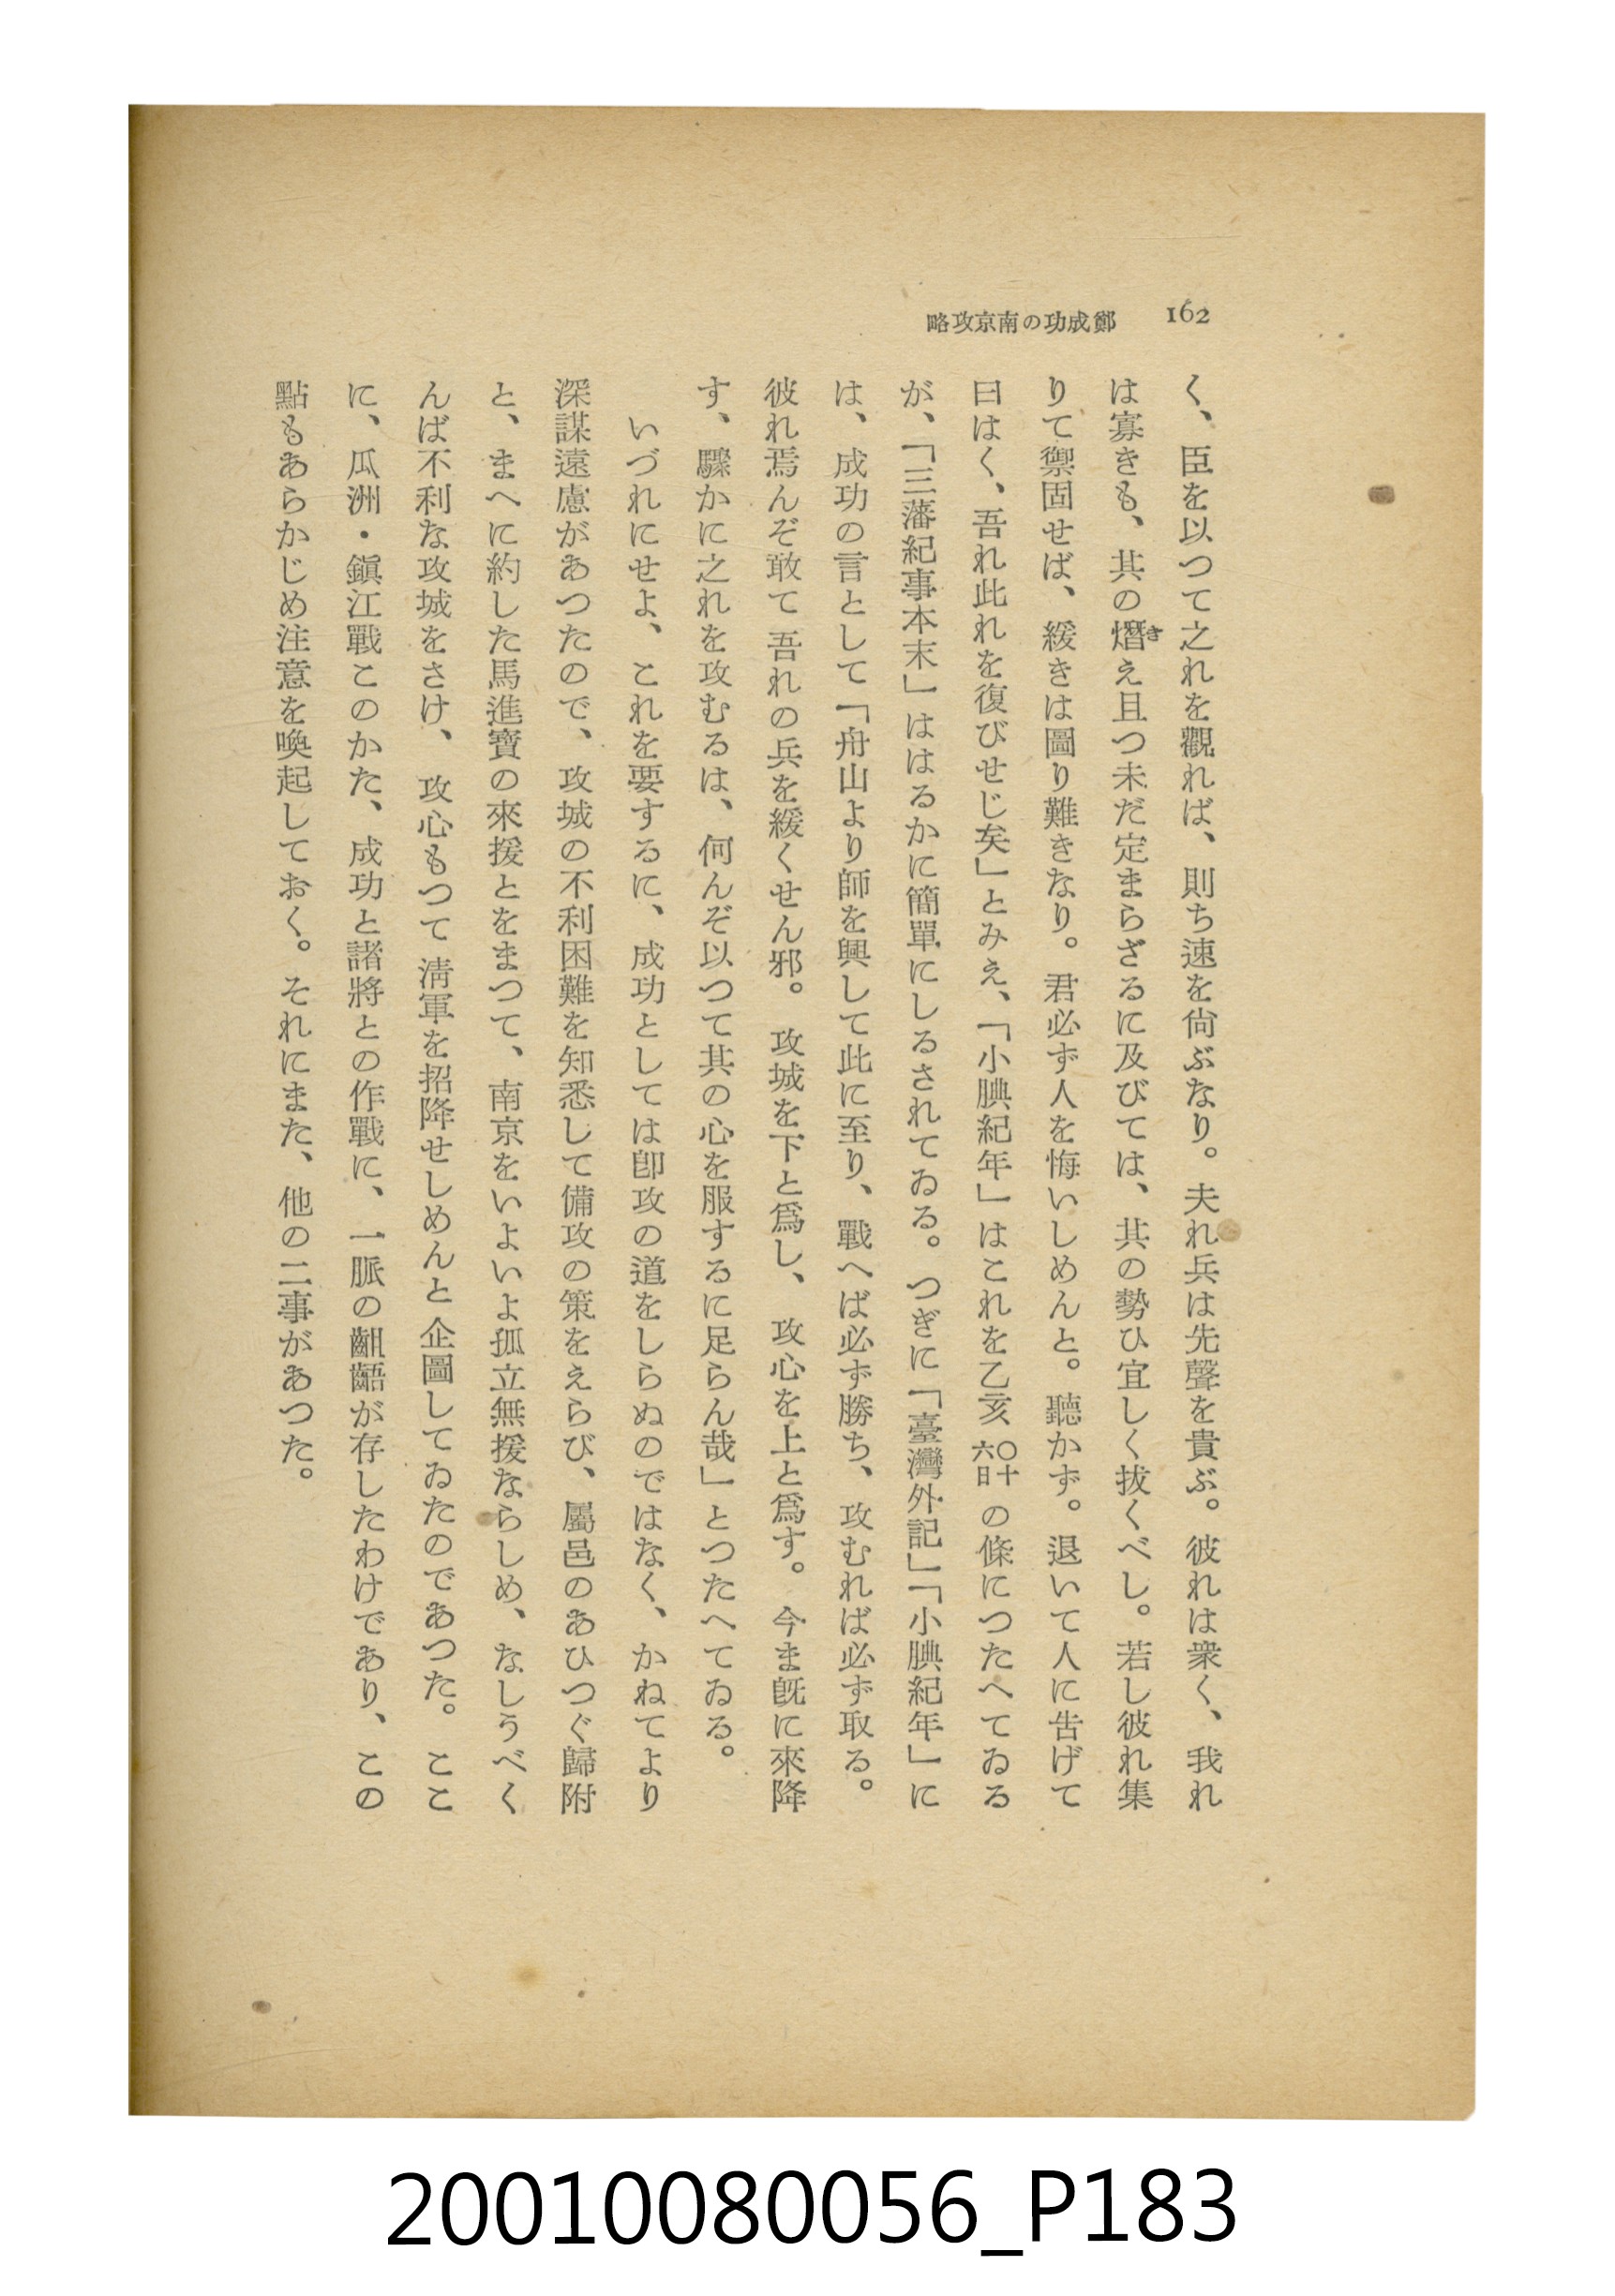 162
鄭成功の南京攻略
く、臣を以つて之れを觀れば、則ち速を尙ぶなり。夫れ兵は先聲を貴ぶ。彼れは衆く、我れ
は寡きも、其の熸え且つ未だ定まらざるに及びては、其の勢ひ宜しく拔くべし。若し彼れ集
き
りて禦固せば、緩きは圖り難きなり。君必ず人を悔いしめんと。聽かず。退いて人に告げて
曰はく、吾れ此れを復びせじ矣」とみえ、「小腆紀年」はこれを乙亥〇十六日の條につたへてゐる
が、「三藩紀事本末」ははるかに簡單にしるされてゐる。つぎに「臺灣外記」「小腆紀年」に
は、成功の言として「舟山より師を興して此に至り、戰へば必ず勝ち、攻むれば必ず取る。
彼れ焉んぞ敢て吾れの兵を緩くせん邪。攻城を下と爲し、攻心を上と爲す。今ま旣に來降
す、驟かに之れを攻むるは、何んぞ以つて其の心を服するに足らん哉」とつたへてゐる。
いづれにせよ、これを要するに、成功としては卽攻の道をしらぬのではなく、かねてより
深謀遠慮があつたので、攻城の不利困難を知悉して備攻の策をえらび、屬邑のあひつぐ歸附
と、まへに約した馬進寶の來援とをまつて、南京をいよいよ孤立無援ならしめ、なしうべく
んば不利な攻城をさけ、攻心もつて淸軍を招降せしめんと企圖してゐたのであつた。ここ
に、瓜洲・鎭江戰このかた、成功と諸將との作戰に、一脈の齟齬が存したわけであり、この
點もあらかじめ注意を喚起しておく。それにまた、他の二事があつた。
20010080056_P183